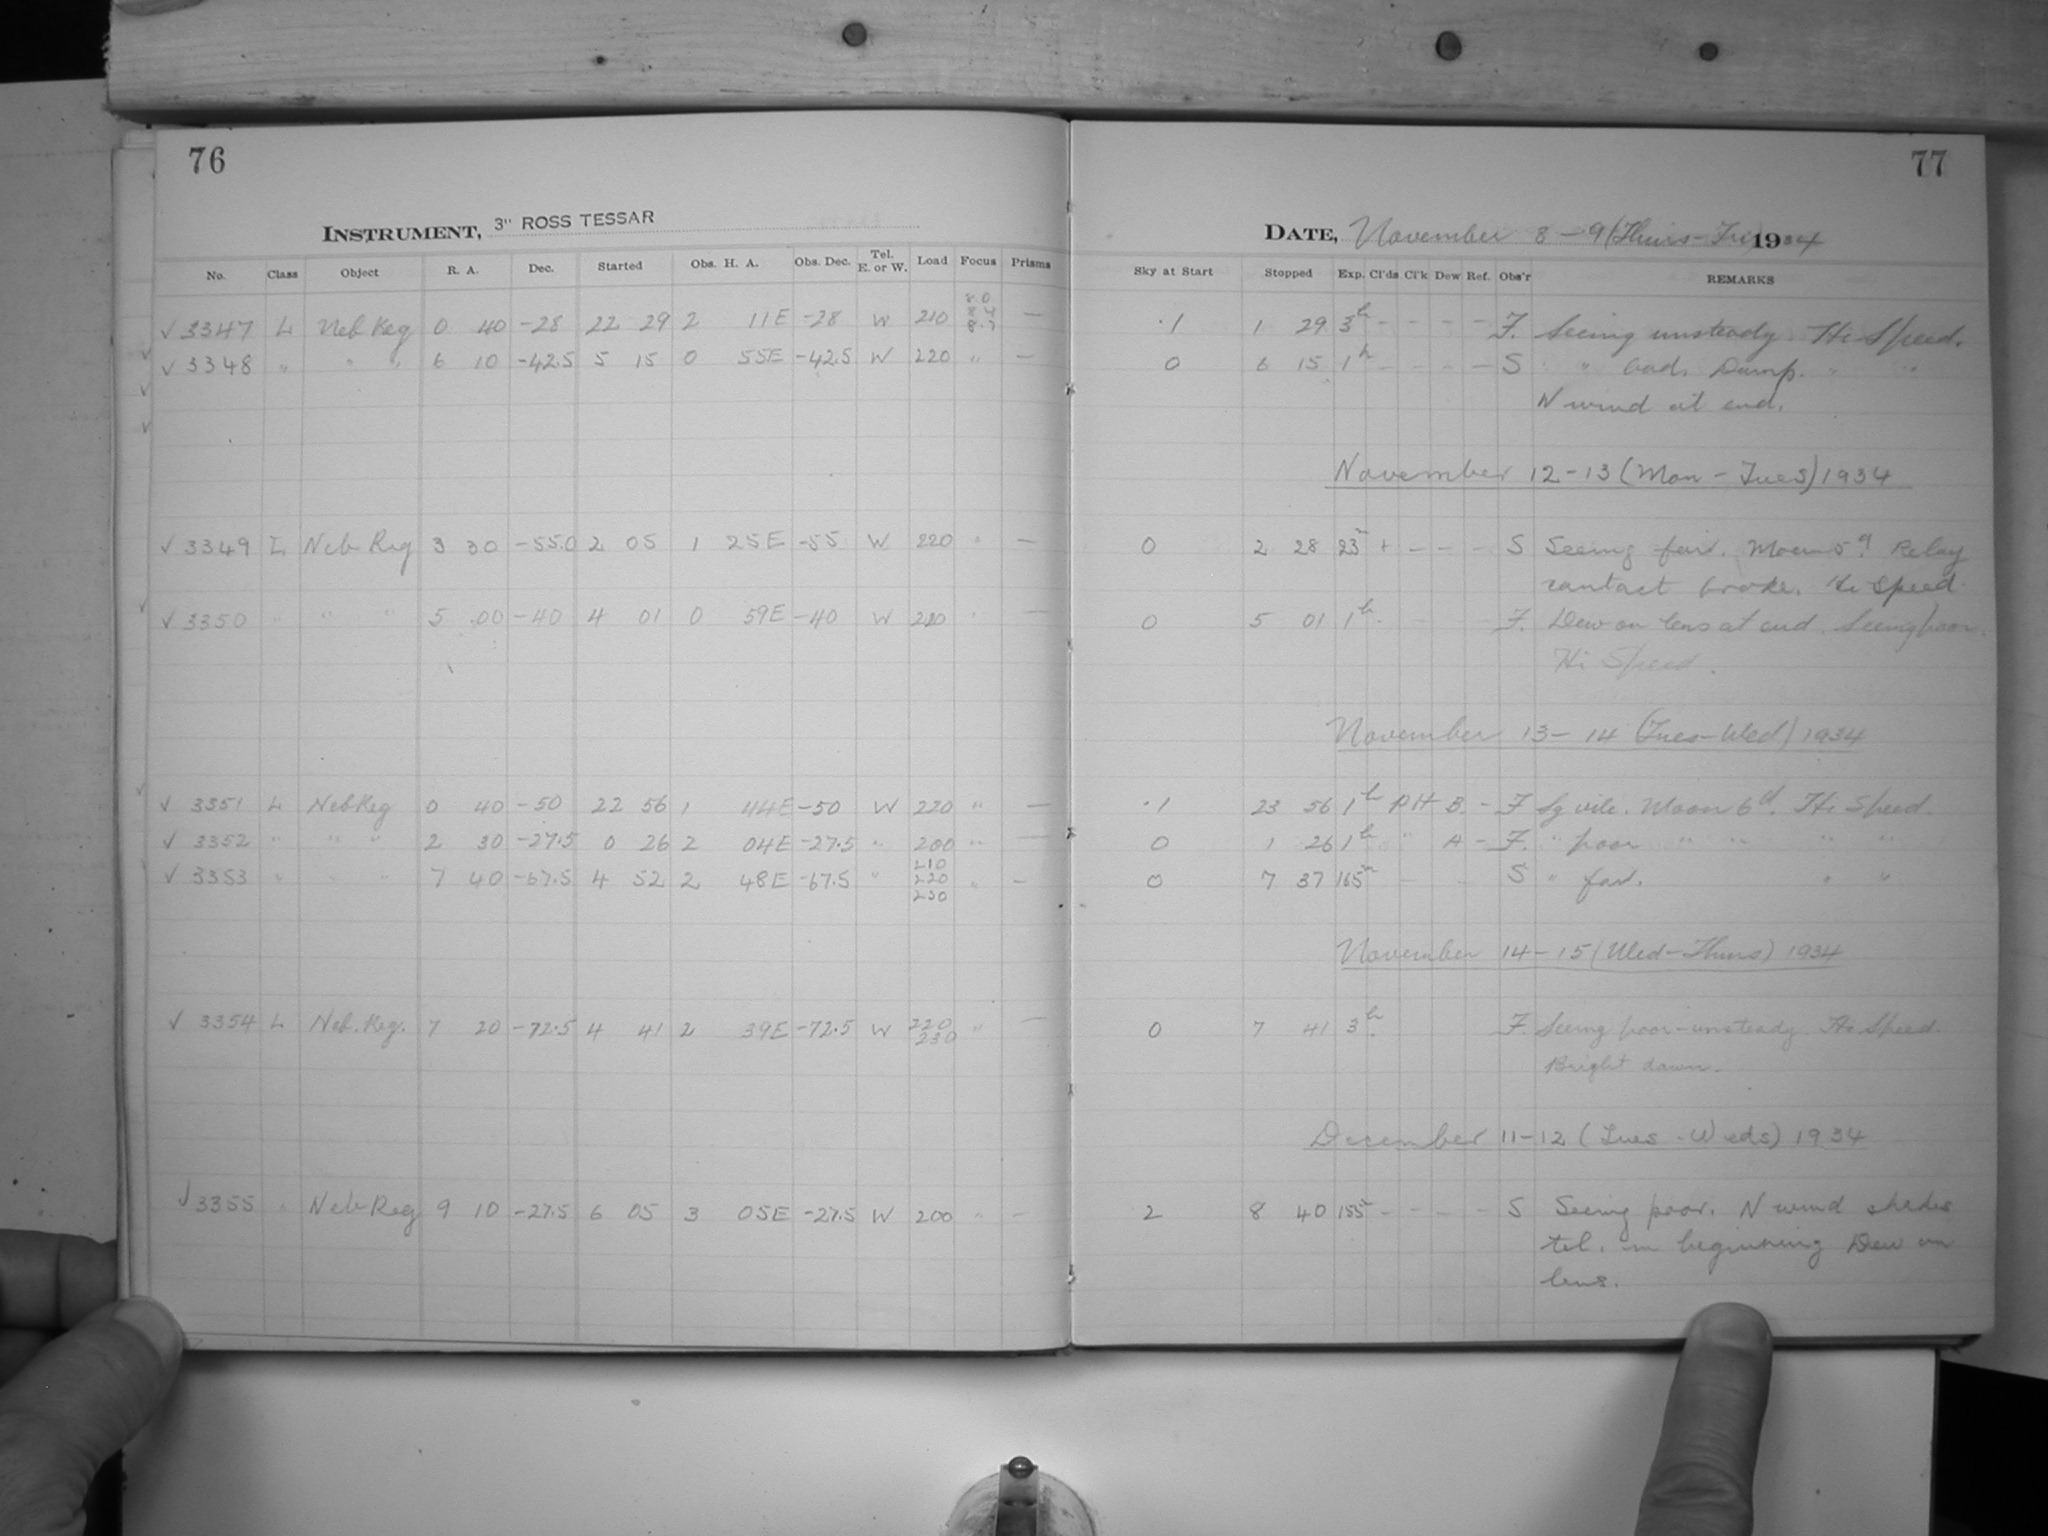 76
INSTRUMENT, 3" ROSS TESSAR
No. Class Object R. A. Dec. Started Obs. H. A. Obs. Dec. Tel. E. or W. Load Focus Prisms
√ 3347 L Neb Reg 0 40 -28 22 29 2 11E -28 W 210 8.0 8.4 8.7 —
√ 3348 " " " 6 10 -42.5 5 15 0 55E -42.5 W 220 " —
√ 3349 L Neb Reg 3 30 -55.0 2 05 1 25E -55 W 220 " —
√ 3350 " " " 5 00 -40 4 01 0 59E -40 W 210 " —
√ 3351 L Neb Reg 0 40 -50 22 56 1 44E -50 W 220 " —
√ 3352 " " " 2 30 -27.5 0 26 2 04E -27.5 " 200 " —
√ 3353 " " " 7 40 -67.5 4 52 2 48E -67.5 " 210 220 230 " —
√ 3354 L Neb. Reg. 7 20 -72.5 4 41 2 39E -72.5 W 220 230 " —
√ 3355 " Neb Reg 9 10 -27.5 6 05 3 05E -27.5 W 200 " —
77
DATE, November 8-9 (Thurs-Fri) 1934
Sky at Start Stopped Exp. Cl'ds Cl'k Dew Ref. Obs'r REMARKS
.1 1 29 3h - - - - F. Seeing unsteady Hi Speed.
0 6 15 1h - - - - S " bad. Damp. " "
N wind at end.
November 12-13 (Mon - Tues) 1934
0 2 28 23m + - - - S Seeing fair. Moon 5d Relay
contact broke. Hi Speed.
0 5 01 1h - F. Dew on lens at end. Seeing poor.
Hi Speed.
November 13-14 (Tues-Wed) 1934
.1 23 56 1h PH B - F Sg vile. Moon 6d. Hi Speed.
0 1 26 1h " A - F. " poor " " " "
0 7 37 165m - - S " fair. " "
November 14-15 (Wed-Thurs) 1934
0 7 41 3h F. Seeing poor-unsteady Hi Speed.
Bright dawn.
December 11-12 (Tues - Weds) 1934
2 8 40 155 - - - - S Seeing poor. N wind shakes
tel. in beginning Dew on
lens.